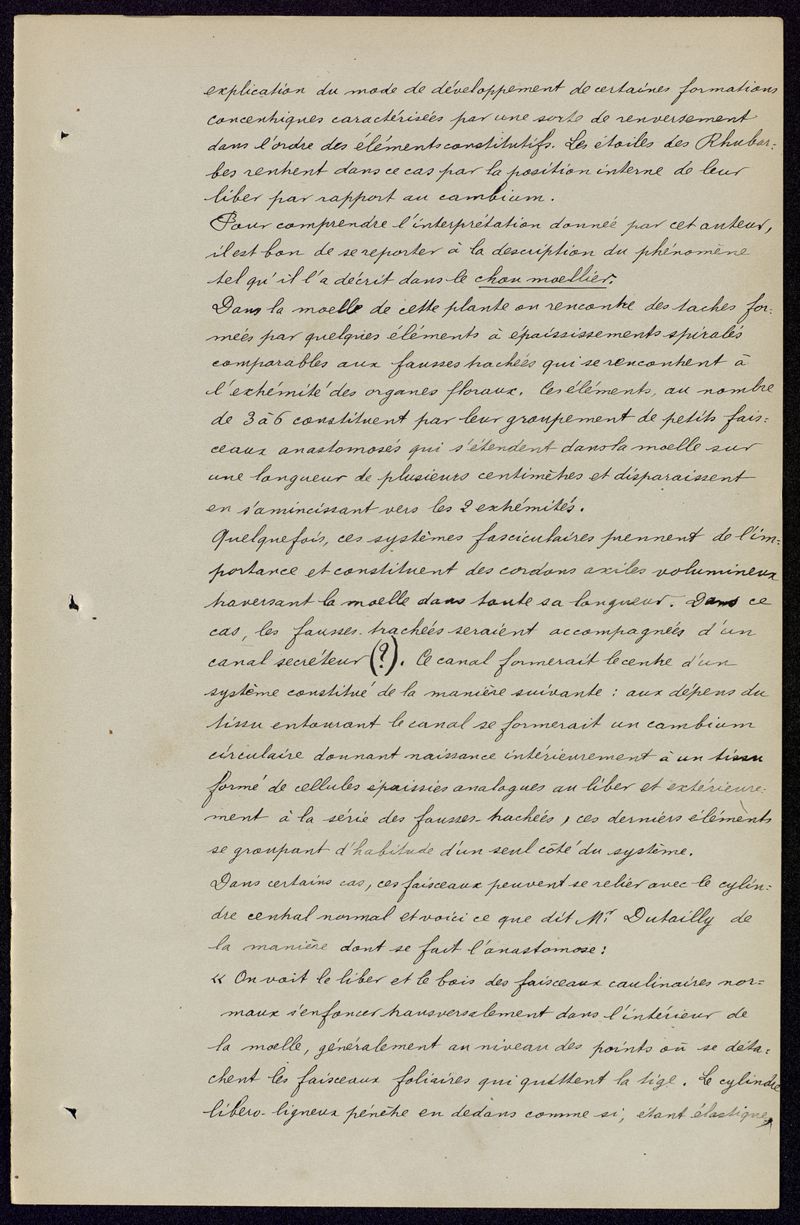 explication du mode de développement de certaines formations
concentriques caractérisées par une sorte de renversement
dans l'ordre des éléments constitutifs. Les étoiles des Rhubar-
bes rentrent dans ce cas par la position interne de leur
liber par rapport au cambium.
Pour comprendre l'interprétation donnée par cet auteur,
il est bon de se reporter à la description du phénomène
tel qu'il l'a décrit dans le chou moellier.
Dans la moelle de cette plante on rencontre des taches for-
meés par quelques éléments à épaississements spiralés
comparables aux fausses trachées qui se rencontrent à
l'extrémité des organes floraux. Ces éléments, au nombre
de 3 à 6 constituent par leur groupement de petits fais-
ceaux anastomosés qui s'étendent dans la moelle sur
une longueur de plusieurs centimètres et disparaissent
en s'amincissant vers les 2 extrémités.
Quelquefois, ces systèmes fasciculaires prennent de l'im-
portance et constituent des cordons axiles volumineux
traversant la moelle dans toute sa longueur. Dans ce
cas, les fausses-trachées seraient accompagnées d'un
canal secréteur (?). Ce canal formerait le centre d'un
système constitué de la manière suivante : aux dépens du
tissu entourant le canal se formerait un cambium
circulaire donnant naissance intérieurement à un tissu
formé de cellules épaissies analogues au liber et extérieure-
ment à la série des fausses-trachées, ces derniers éléments
se groupant d'habitude d'un seul côté du système.
Dans certains cas, ces faisceaux peuvent se relier avec le cylin-
dre central normal et voici ce que dit Mr. Dutailly de
la manière dont se fait l'anastomose :
« On voit le liber et le bois des faisceaux caulinaires nor-
maux s'enfoncer transversalement dans l'intérieur de
la moelle, généralement au niveau des points où se déta-
chent les faisceaux foliaires qui quittent la tige. Le cylindre
libero-ligneux pénètre en dedans comme si, étant élastique,